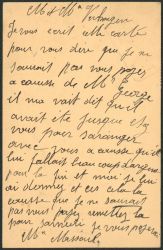 M & Me Verhaegen
Je vous ecrit cette carte
pour vous dire que je ne
saurait pas vous payez
a cause de Mr George
il ma vait dit qu'il
avait ete jusque chez
vous pour s'aranger
avec vous a cause qu'il
lui fallait beaucoup d'argent
pour la fin et moi je lui
ai donnez et ces cela la
cause que je ne saurait
pas vous payez
je vous payerai
Me Massart